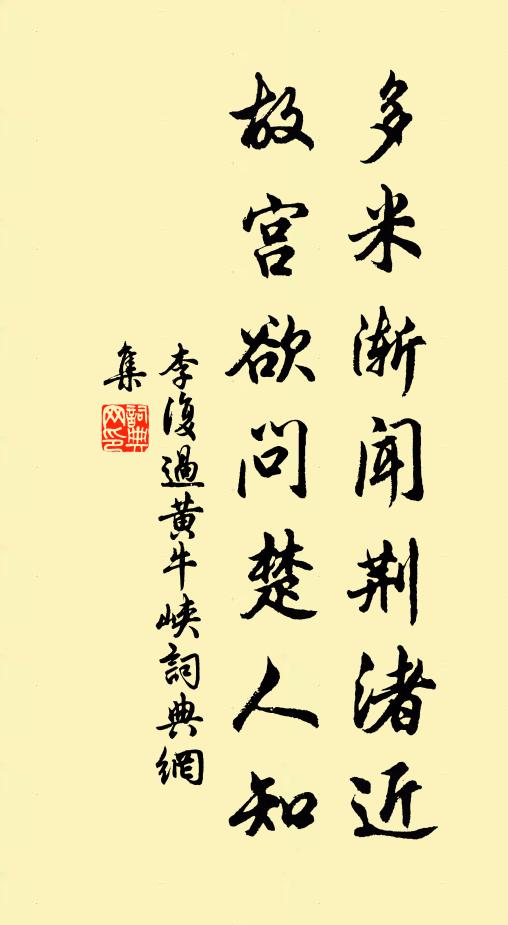 多米渐闻荆渚近
故宫欲问楚人知
李復過黄牛峡詞典網
集
詞典网印